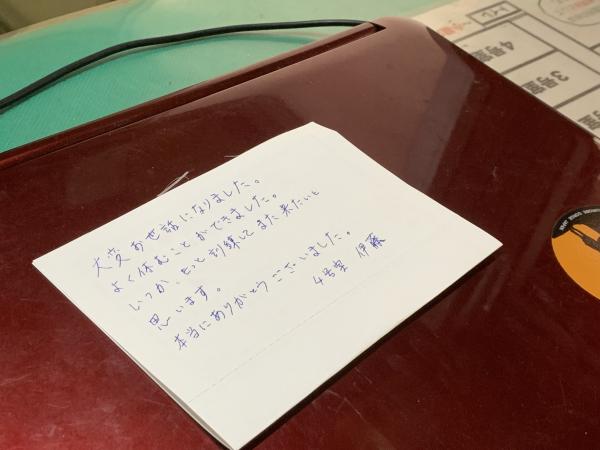 大変お世話になりました。
よく休むことができました。
いつか、もっと訓練してまた来たいと
思います。
本当にありがとうございました。
4号室 伊藤
トイレ
4号室
3号室